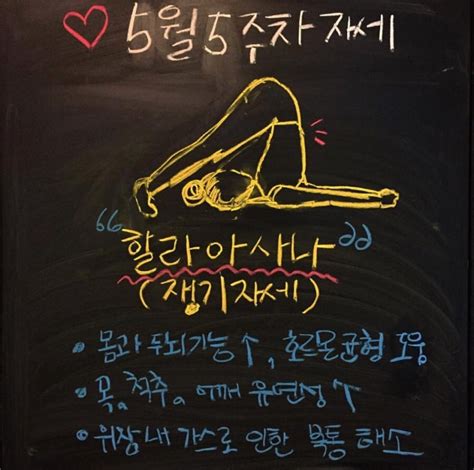 5월 5주차 자세
"할라아사나"
(쟁기자세)
• 몸과 두뇌기능↑, 호르몬균형 도움
• 목, 척추, 어깨 유연성↑
• 위장 내 가스로 인한 복통 해소